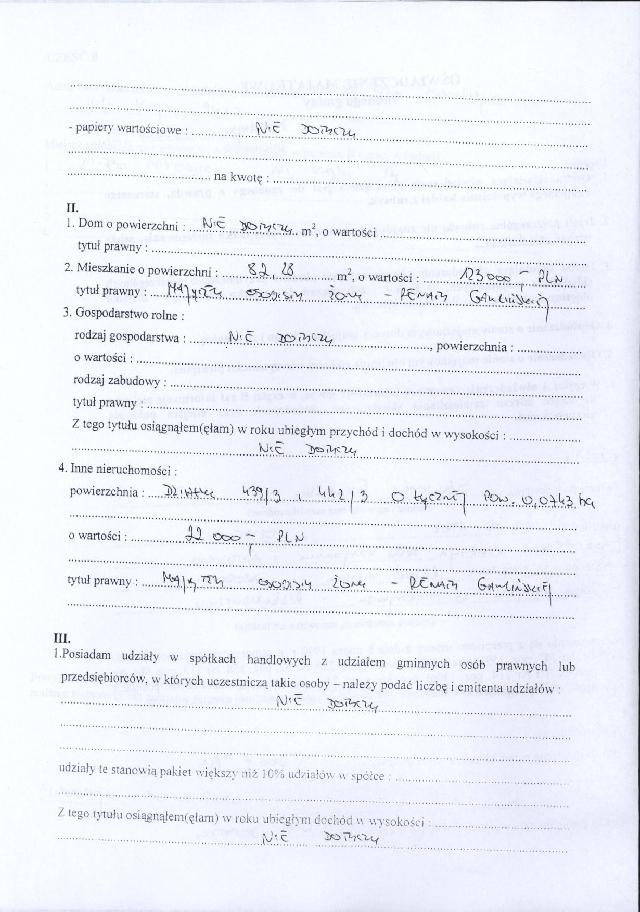 - papiery wartościowe : NIE DOTYCZY
na kwotę :
II.
1. Dom o powierzchni : NIE DOTYCZY m², o wartości :
tytuł prawny :
2. Mieszkanie o powierzchni : 82,28 m², o wartości : 123 000 - PLN
tytuł prawny : MAJĄTEK OSOBISTY ŻONY - RENATY GAWLIŃSKIEJ
3. Gospodarstwo rolne :
rodzaj gospodarstwa : NIE DOTYCZY, powierzchnia :
o wartości :
rodzaj zabudowy :
tytuł prawny :
Z tego tytułu osiągnąłem(ęłam) w roku ubiegłym przychód i dochód w wysokości :
NIE DOTYCZY
4. Inne nieruchomości :
powierzchnia : DZIAŁKI 439/3 i 442/3 O łącznej POW. 0,0743 ha
o wartości : 22 000 - PLN
tytuł prawny : MAJĄTEK OSOBISTY ŻONY - RENATY GAWLIŃSKIEJ
III.
1.Posiadam udziały w spółkach handlowych z udziałem gminnych osób prawnych lub
przedsiębiorców, w których uczestniczą takie osoby – należy podać liczbę i emitenta udziałów :
NIE DOTYCZY
udziały te stanowią pakiet większy niż 10% udziałów w spółce :
Z tego tytułu osiągnąłem(ęłam) w roku ubiegłym dochód w wysokości :
NIE DOTYCZY